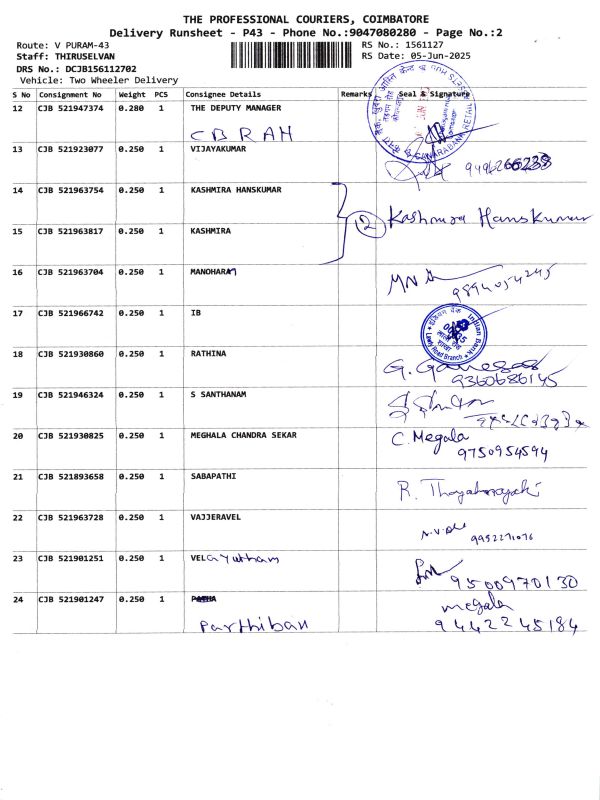 THE PROFESSIONAL COURIERS, COIMBATORE
Delivery Runsheet - P43 - Phone No.:9047080280 - Page No.:2
Route: V PURAM-43 RS No.: 1561127
Staff: THIRUSELVAN RS Date: 05-Jun-2025
DRS No.: DCJB156112702
Vehicle: Two Wheeler Delivery
S No Consignment No Weight PCS Consignee Details Remarks Seal & Signature
12 CJB 521947374 0.280 1 THE DEPUTY MANAGER
CB RAH
13 CJB 521923077 0.250 1 VIJAYAKUMAR
14 CJB 521963754 0.250 1 KASHMIRA HANSKUMAR
2 Kashmira Hanskumar
15 CJB 521963817 0.250 1 KASHMIRA
16 CJB 521963704 0.250 1 MANOHARAN
9894054245
17 CJB 521966742 0.250 1 IB
Indian Bank
Lawly Road Branch
18 CJB 521930860 0.250 1 RATHINA
G. Ganesan
9360686145
19 CJB 521946324 0.250 1 S SANTHANAM
20 CJB 521930825 0.250 1 MEGHALA CHANDRA SEKAR C. Megala
9750954594
21 CJB 521893658 0.250 1 SABAPATHI
R. Thayalnayaki
22 CJB 521963728 0.250 1 VAJJERAVEL
9952271076
23 CJB 521901251 0.250 1 VELayutham
9500970130
24 CJB 521901247 0.250 1 megala
Parthiban 9442245184